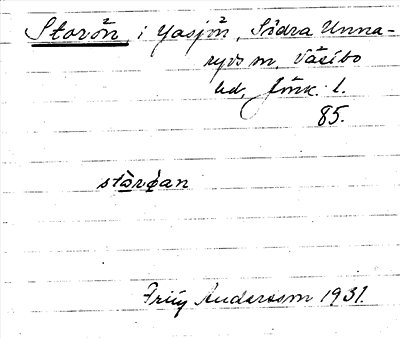 Storön, i Yasjön, Södra Unna-
ryds sn, Västbo
hd, Jönk. l.
85.
störöan
Friij Andersson 1931.